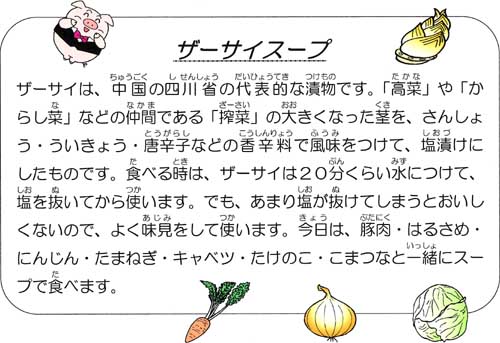 ザーサイスープ
ザーサイは、中国の四川省の代表的な漬物です。「高菜」や「か
らし菜」などの仲間である「搾菜」の大きくなった茎を、さんしょ
う・ういきょう・唐辛子などの香辛料で風味をつけて、塩漬けに
したものです。食べる時は、ザーサイは20分くらい水につけて、
塩を抜いてから使います。でも、あまり塩が抜けてしまうとおいし
くないので、よく味見をして使います。今日は、豚肉・はるさめ・
にんじん・たまねぎ・キャベツ・たけのこ・こまつなと一緒にスー
プで食べます。